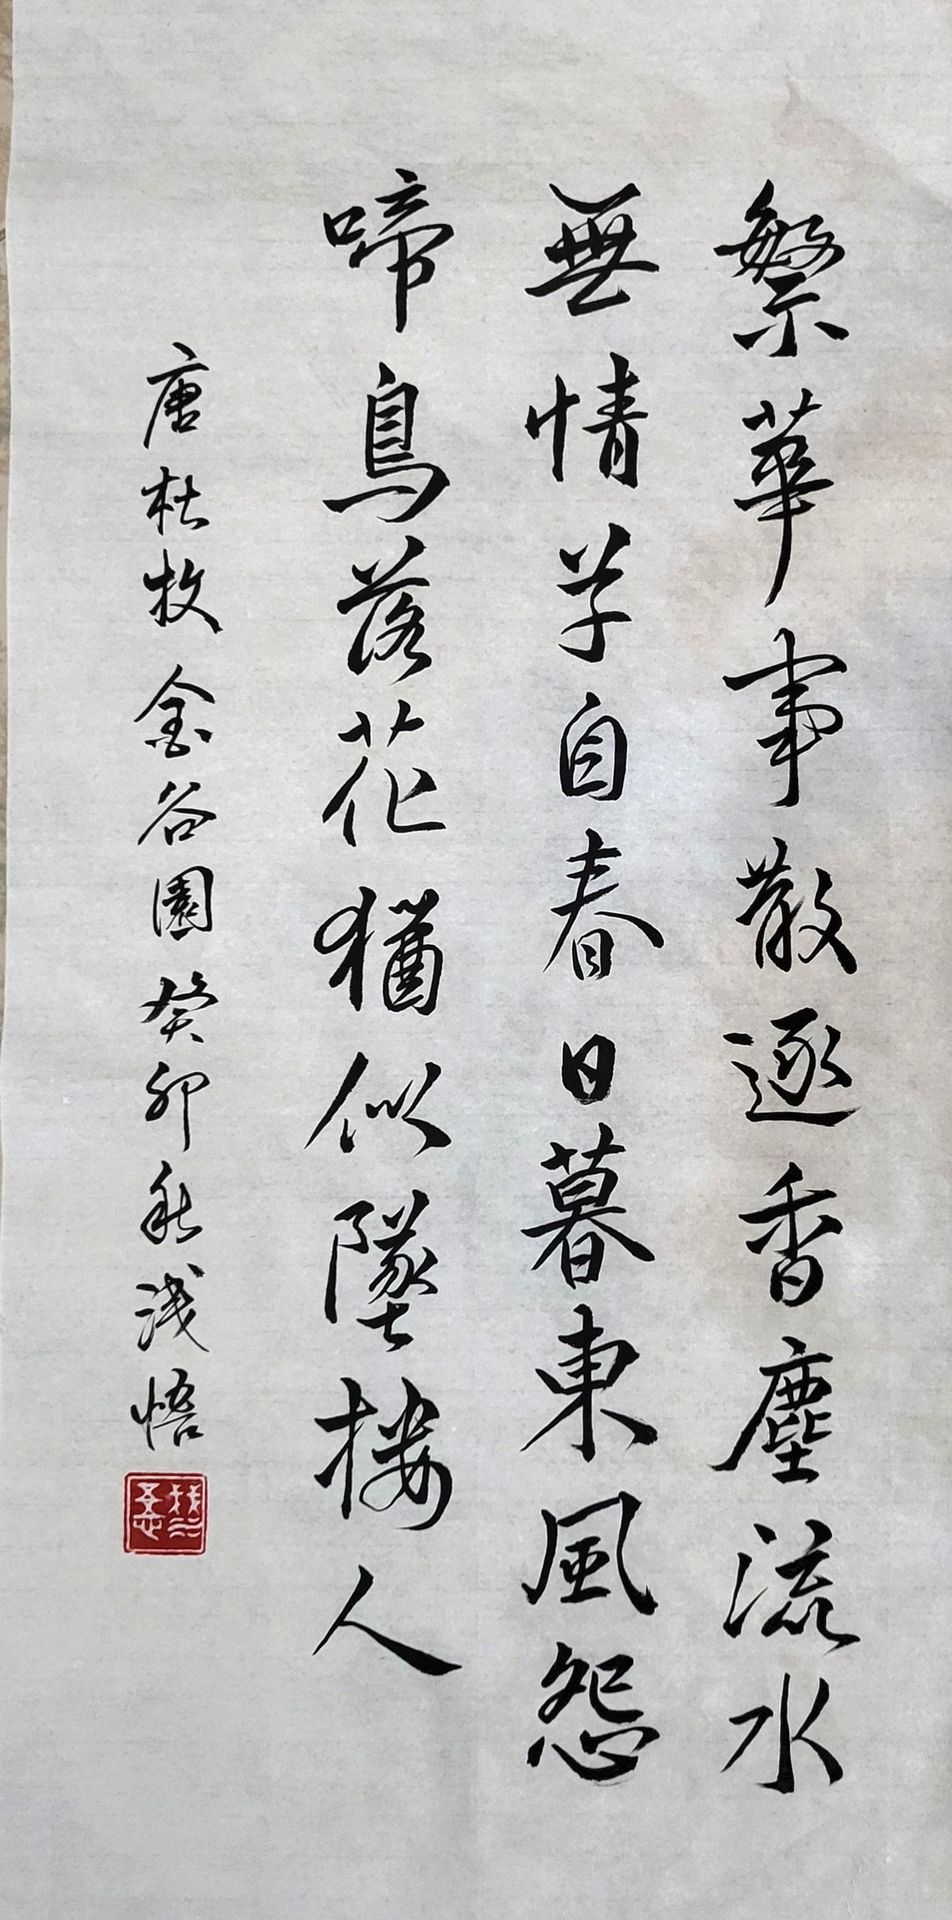 繁華事散逐香塵流水
無情草自春日暮東風怨
啼鳥落花猶似墜樓人
唐杜牧金谷園癸卯秋淺悟